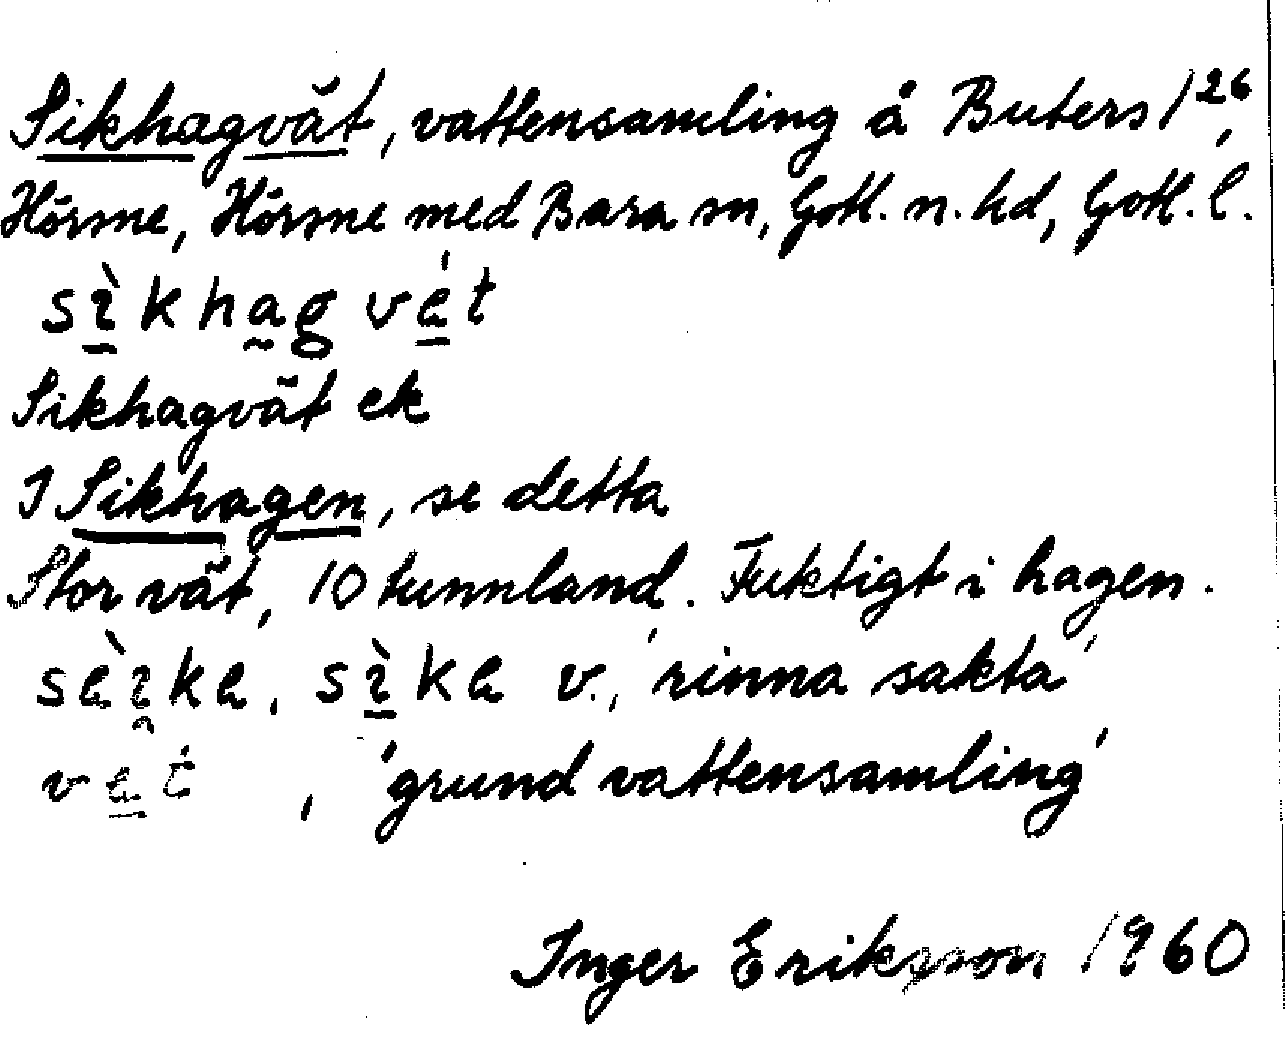 Sikhagvät, vattensamling å Buters 1²⁶,
Hörsne, Hörsne med Bara sn, Gotl. n. hd, Gotl. l.
sì̱khag vé̱t
Sikhagvät ek
I Sikhagen, se detta
Stor vät, 10 tunnland. Fuktigt i hagen.
sèika, sì̱ka v., 'rinna sakta'
ve̱t , 'grund vattensamling'
Inger Eriksson 1960